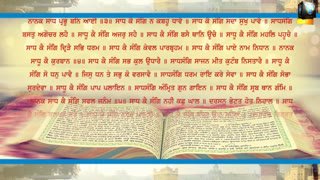 ਨਾਨਕ ਸਾਧ ਪ੍ਰਭੂ ਬਨਿ ਆਈ ॥੩॥ ਸਾਧ ਕੈ ਸੰਗਿ ਨ ਕਬਹੂ ਧਾਵੈ ॥ ਸਾਧ ਕੈ ਸੰਗਿ ਸਦਾ ਸੁਖੁ ਪਾਵੈ ॥ ਸਾਧਸੰਗਿ
ਬਸਤੁ ਅਗੋਚਰ ਲਹੈ ॥ ਸਾਧੂ ਕੈ ਸੰਗਿ ਅਜਰੁ ਸਹੈ ॥ ਸਾਧ ਕੈ ਸੰਗਿ ਬਸੈ ਥਾਨਿ ਊਚੈ ॥ ਸਾਧੂ ਕੈ ਸੰਗਿ ਮਹਲਿ ਪਹੂਚੈ ॥
ਸਾਧ ਕੈ ਸੰਗਿ ਦ੍ਰਿੜੈ ਸਭਿ ਧਰਮ ॥ ਸਾਧ ਕੈ ਸੰਗਿ ਕੇਵਲ ਪਾਰਬ੍ਰਹਮ ॥ ਸਾਧ ਕੈ ਸੰਗਿ ਪਾਏ ਨਾਮ ਨਿਧਾਨ ॥ ਨਾਨਕ
ਸਾਧੂ ਕੈ ਕੁਰਬਾਨ ॥੪॥ ਸਾਧ ਕੈ ਸੰਗਿ ਸਭ ਕੁਲ ਉਧਾਰੈ ॥ ਸਾਧਸੰਗਿ ਸਾਜਨ ਮੀਤ ਕੁਟੰਬ ਨਿਸਤਾਰੈ ॥ ਸਾਧੂ ਕੈ
ਸੰਗਿ ਸੋ ਧਨੁ ਪਾਵੈ ॥ ਜਿਸੁ ਧਨ ਤੇ ਸਭੁ ਕੋ ਵਰਸਾਵੈ ॥ ਸਾਧਸੰਗਿ ਧਰਮ ਰਾਇ ਕਰੇ ਸੇਵਾ ॥ ਸਾਧ ਕੈ ਸੰਗਿ ਸੋਭਾ
ਸੁਰਦੇਵਾ ॥ ਸਾਧੂ ਕੈ ਸੰਗਿ ਪਾਪ ਪਲਾਇਨ ॥ ਸਾਧਸੰਗਿ ਅੰਮ੍ਰਿਤ ਗੁਨ ਗਾਇਨ ॥ ਸਾਧ ਕੈ ਸੰਗਿ ਸ੍ਰਬ ਥਾਨ ਗੰਮਿ ॥
ਨਾਨਕ ਸਾਧ ਕੈ ਸੰਗਿ ਸਫਲ ਜਨੰਮ ॥੫॥ ਸਾਧ ਕੈ ਸੰਗਿ ਨਹੀ ਕਛੁ ਘਾਲ ॥ ਦਰਸਨੁ ਭੇਟਤ ਹੋਤ ਨਿਹਾਲ ॥ ਸਾਧ